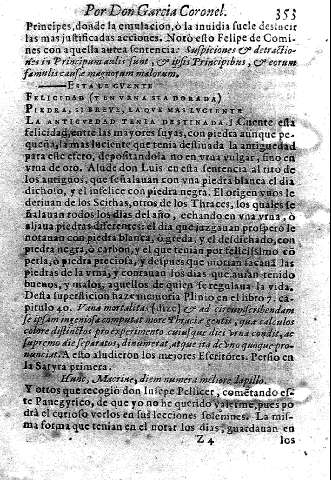 Por Don Garcia Coronel. 353
Principes, donde la emulacion, ò la inuidia suele deslucir
las mas justificadas acciones. Notò esto Felipe de Comi-
nes con aquella autea sentencia: Suspiciones & detractio-
nes in Principum aulis sunt, & ipsis Principibus, & eorum
famulis causæ magnorum malorum.
ESTA LUCIENTE
FELICIDAD (Y EN VRNA SEA DORADA)
PIEDRA, SI BREVE, LA QVE MAS LVCIENTE
LA ANTIGVEDAD TENIA DESTINADA.) Cuente esta
felicidad, entre las mayores suyas, con piedra aunque pe-
queña, la mas luciente que tenia destinada la antiguedad
para este efeto, depositandola no en vrna vulgar, sino en
vrna de oro. Alude don Luis en esta sentencia al rito de
los antiguos, que señalauan con vna piedra blanca el dia
dichoso, y el infelice con piedra negra. El origen vnos le
deriuan de los Scithas, otros de los Thraces, los quales se
ñalauan todos los dias del año, echando en vna vrna, ò
aljaua piedras diferentes: el dia que juzgauan prospero le
notauan con piedra blanca, ò greda; y el desdichado, con
piedra negra, ò carbon, y el que tenian por felicissimo con
perla, ò piedra preciosa, y despues que morian sacauã las
piedras de la vrna, y contauan los dias que auian tenido
buenos, y malos, aquellos de quien se regulaua la vida.
Desta supersticion haze memoria Plinio en el libro 7. ca-
pitulo 40. Vana mortalitas [...] & ad circunscribendam
se ipsam ingeniosa computat more Thraciæ gentis, quæ calculos
colore distinctos pro experimento cuiusque diei vrna condit, ac
supremo die separatos, dinumerat, atque ita de vno quoque pro-
nunciat. A esto aludieron los mejores Escritores. Persio en
la Satyra primera.
Hunc, Macrine, diem numera meliore lapillo.
Y otros que recogiò don Iusepe Pellicer, comentando es-
te Panegyrico, de que yo no he querido valerme, pues po
drà el curioso verlos en sus lecciones solemnes. La mis-
ma forma que tenian en el notar los dias, guardauan en
Z 4 los